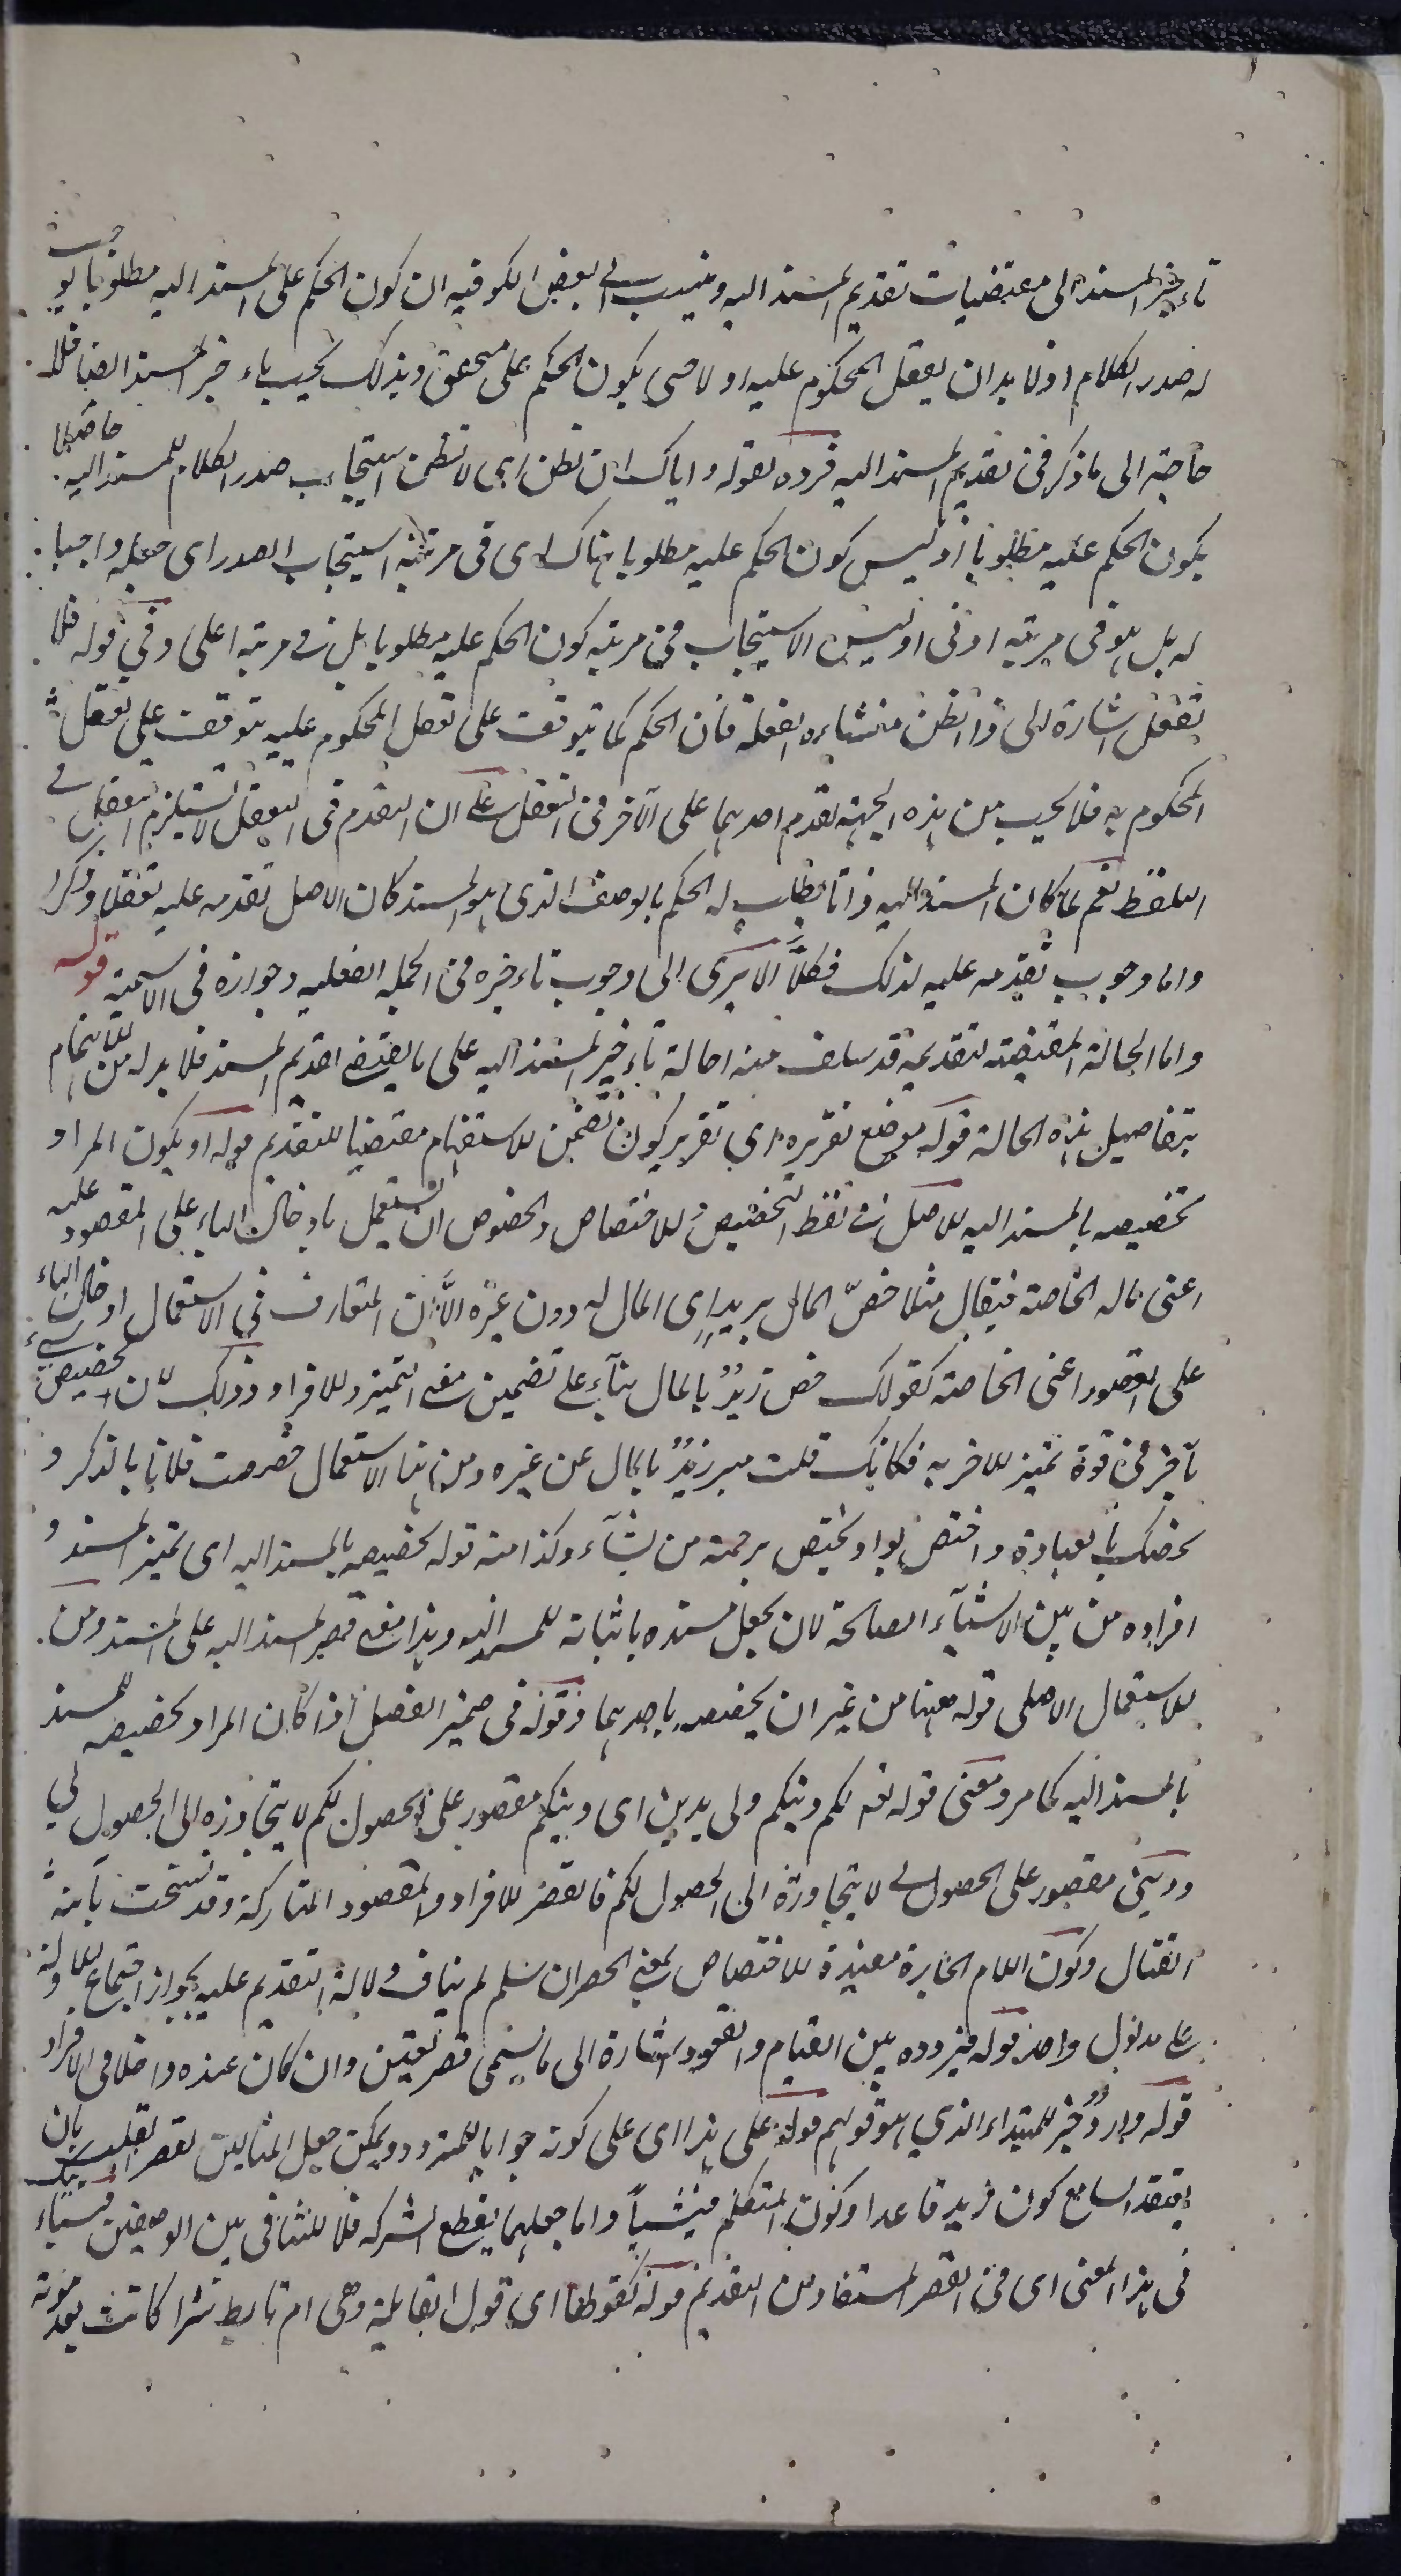 تاءخير المسند الى مقتضيات تقديم المسند اليه وينسب الى البعض الكوفيه ان كون الحكم على المسند اليه مطلوبا يوجب
له صدر الكلام اذ لا بد ان يعقل المحكوم عليه اولا حتى يكون الحكم على متحقق وبذلك يجب تاءخير المسند ايضا فلا
حاجة الى ما ذكر فى تقديم المسند اليه فرده بقوله واياك ان تظن اى لا تظن استيجاب صدر الكلام للمسند اليه حاصلا
بكون الحكم عليه مطلوبا اذ ليس كون الحكم عليه مطلوبا هناك اى فى مرتبة استيجاب الصدر اى جعله واجبا
له بل هو فى مرتبة ادنى او ليس الاستيجاب فى مرتبة كون الحكم عليه مطلوبا بل فى مرتبة اعلى وفى قوله فلا
تغفل اشارة الى ان ذا الظن منشاءه الغفلة فان الحكم كما يتوقف على تعقل المحكوم عليه يتوقف على تعقل
المحكوم به فلا يجب من هذه الجهة تقدم احدهما على الآخر فى التعقل على ان التقدم فى التعقل لا يستلزم التقدم فى
التلفظ نعم لما كان المسند اليه ذاتا يطلب له الحكم بالوصف الذى هو المسند كان الاصل تقدمه عليه تعقلا وذكرا
واما وجوب تقدمه عليه لذلك فكلا الا يرى الى وجوب تاءخيره فى الجملة الفعلية وجوازه فى الاسمية قوله
واما الحالة المقتضية لتقديمه قد سلف منه احالة تاءخير المسند اليه على ما يقتضى تقديم المسند فلا بد له من الاهتمام
بتفاصيل هذه الحالة قوله موضع تقريره اى تقرير كون تضمن الاستفهام مقتضيا للتقديم قوله او يكون المراد
تخصيصه بالمسند اليه الاصل فى لفظ التخصيص والاختصاص والخصوص ان يستعمل بادخال الباء على المقصور عليه
اعنى ماله الخاصة فيقال مثلا خصّ المال بزيد اى المال له دون غيره الّا ان المتعارف فى الاستعمال ادخال الباء
على المقصور اعنى الخاصة كقولك خص زيدٌ بالمال بناء على تضمين معنى التميز والافراد وذلك لان تخصيص شىء
بآخر فى قوة تميز الآخر به فكانك قلت ميز زيدٌ بالمال عن غيره ومن هذا الاستعمال خصصت فلانا بالذكر و
نخصك بالعبادة واختص بوا ويختص برحمته من يشاء وكذا منه قوله تخصيصه بالمسند اليه اى تميز المسند و
افراده من بين الاشياء الصالحة لان يجعل مسنده باثباته للمسند اليه وهذا معنى قصر المسند اليه على المسند ومن
الاستعمال الاصلى قوله ههنا من غير ان يخصصه باحدهما وقوله فى ضمير الفصل اذا كان المراد تخصيصه للمسند
بالمسند اليه كما مر ومعنى قوله تعالى لكم دينكم ولى دين اى دينكم مقصور على الحصول لكم لا يتجاوزه الى الحصول لى
ودينى مقصور على الحصول لى لا يتجاوزه الى الحصول لكم فالقصر للافراد والمقصود المتاركة وقد نسخت بآية
القتال وكون اللام الجارة مفيدة للاختصاص بمعنى الحصر ان سلم لم يناف دلالة التقديم عليه لجواز اجتماع الادلة
على مدلول واحد قوله فيردده بين القيام والقعود اشارة الى ما يسمى قصر تعيين وان كان عنده داخلا فى الافراد
قوله وارد خبر للمبتداء الذى هو قولهم قوله على هذا اى على كونه جوابا للمتردد ويمكن جعل المثالين لقصر القلب بان
اعتقد السامع كون زيد قاعدا وكون المتكلم قيسيا واما جعلهما لقطع الشركة فلا للتنافى بين الوصفين
فى هذا المعنى اى فى القصر المستفاد من التقديم قوله كقولها اى قول القايلة وهى ام تابط شرا كانت بعد موته